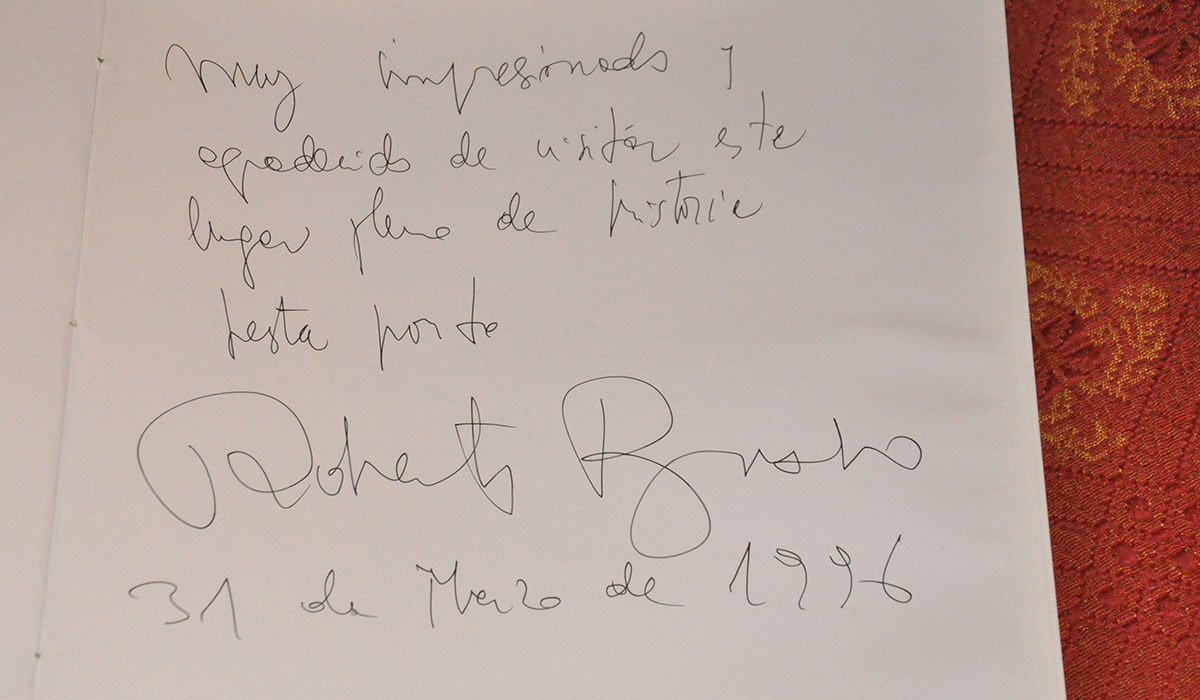 Muy impresionado y
agradecido de visitar este
lugar pleno de historia
hasta pronto
Roberto
31 de Marzo de 1996